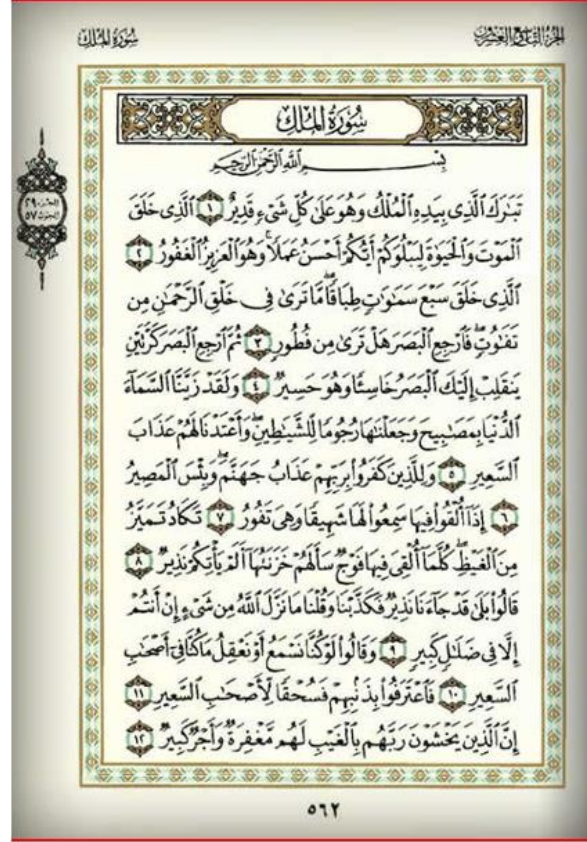 الجزء التاسع والعشرون
سُورَةُ المُلْكِ
سُورَةُ المُلْكِ
بِسْمِ ٱللَّهِ ٱلرَّحْمَٰنِ ٱلرَّحِيمِ
تَبَٰرَكَ ٱلَّذِى بِيَدِهِ ٱلْمُلْكُ وَهُوَ عَلَىٰ كُلِّ شَىْءٍ قَدِيرٌ ١ ٱلَّذِى خَلَقَ
ٱلْمَوْتَ وَٱلْحَيَوٰةَ لِيَبْلُوَكُمْ أَيُّكُمْ أَحْسَنُ عَمَلًا ۚ وَهُوَ ٱلْعَزِيزُ ٱلْغَفُورُ ٢
ٱلَّذِى خَلَقَ سَبْعَ سَمَٰوَٰتٍ طِبَاقًا ۖ مَّا تَرَىٰ فِى خَلْقِ ٱلرَّحْمَٰنِ مِن
تَفَٰوُتٍ ۖ فَٱرْجِعِ ٱلْبَصَرَ هَلْ تَرَىٰ مِن فُطُورٍ ٣ ثُمَّ ٱرْجِعِ ٱلْبَصَرَ كَرَّتَيْنِ
يَنقَلِبْ إِلَيْكَ ٱلْبَصَرُ خَاسِئًا وَهُوَ حَسِيرٌ ٤ وَلَقَدْ زَيَّنَّا ٱلسَّمَآءَ
ٱلدُّنْيَا بِمَصَٰبِيحَ وَجَعَلْنَٰهَا رُجُومًا لِّلشَّيَٰطِينِ ۖ وَأَعْتَدْنَا لَهُمْ عَذَابَ
ٱلسَّعِيرِ ٥ وَلِلَّذِينَ كَفَرُوا۟ بِرَبِّهِمْ عَذَابُ جَهَنَّمَ ۖ وَبِئْسَ ٱلْمَصِيرُ
٦ إِذَآ أُلْقُوا۟ فِيهَا سَمِعُوا۟ لَهَا شَهِيقًا وَهِىَ تَفُورُ ٧ تَكَادُ تَمَيَّزُ
مِنَ ٱلْغَيْظِ ۖ كُلَّمَآ أُلْقِىَ فِيهَا فَوْجٌ سَأَلَهُمْ خَزَنَتُهَآ أَلَمْ يَأْتِكُمْ نَذِيرٌ ٨
قَالُوا۟ بَلَىٰ قَدْ جَآءَنَا نَذِيرٌ فَكَذَّبْنَا وَقُلْنَا مَا نَزَّلَ ٱللَّهُ مِن شَىْءٍ إِنْ أَنتُمْ
إِلَّا فِى ضَلَٰلٍ كَبِيرٍ ٩ وَقَالُوا۟ لَوْ كُنَّا نَسْمَعُ أَوْ نَعْقِلُ مَا كُنَّا فِىٓ أَصْحَٰبِ
ٱلسَّعِيرِ ١٠ فَٱعْتَرَفُوا۟ بِذَنۢبِهِمْ فَسُحْقًا لِّأَصْحَٰبِ ٱلسَّعِيرِ ١١
إِنَّ ٱلَّذِينَ يَخْشَوْنَ رَبَّهُم بِٱلْغَيْبِ لَهُم مَّغْفِرَةٌ وَأَجْرٌ كَبِيرٌ ١٢
الجزء ٢٩
الحزب ٥٧
٥٦٢